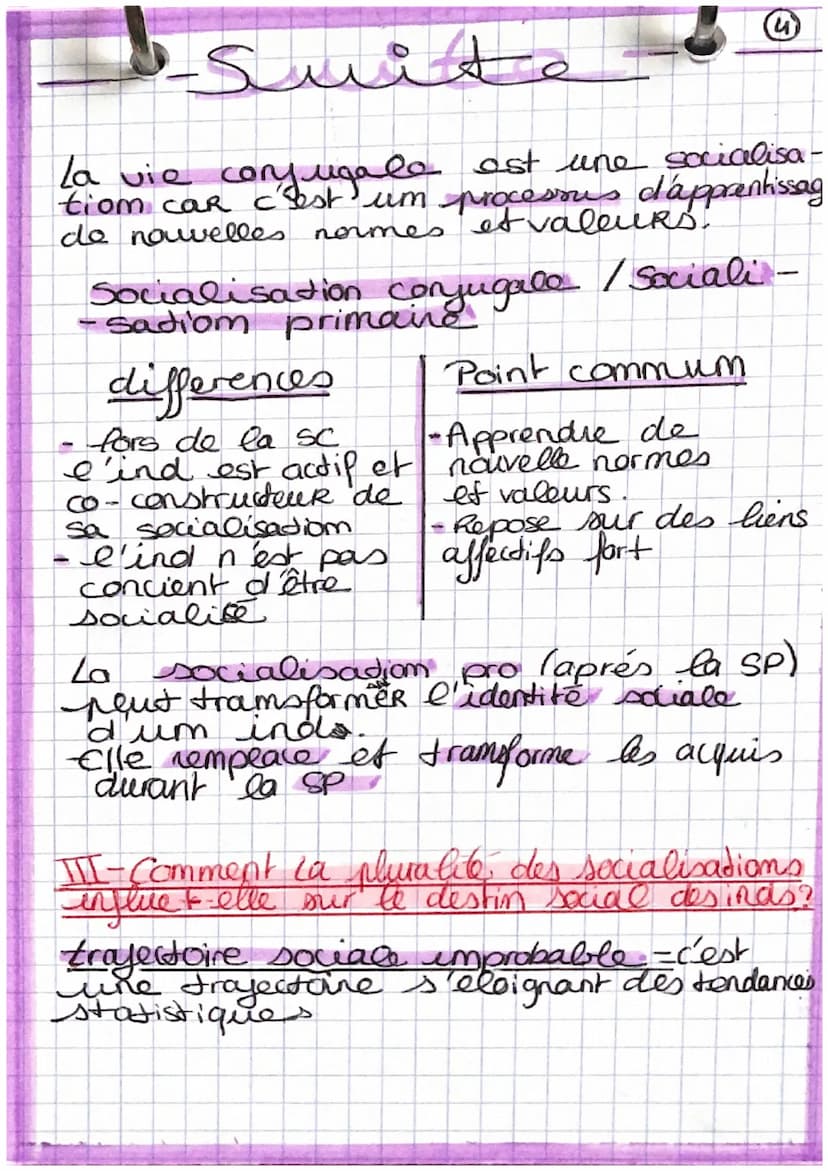 4
-Suite-
La vie conjugale est une socialisa-
tion car c'est un processus d'apprentissag
de nouvelles normes et valeurs.
Socialisation conjugale / Sociali-
-sation primaire
differences
- fors de la SC
l'ind est actif et
co-constructeur de
sa socialisation
- l'ind n'est pas
concient d'être
socialisé
Point commum
-Apprendre de
nouvelle normes
et valeurs.
- Repose sur des liens
affectifs fort
La socialisation pro (aprés la SP)
peut transformer l'identité sociale
d'um inds.
Elle remplace et transforme les acquis
durant la SP
III-Comment la pluralité des socialisations
influe t-elle sur le destin social des inds?
trajectoire sociale improbable =c'est
une trajectoire s'eloignant des tendances
statistiques